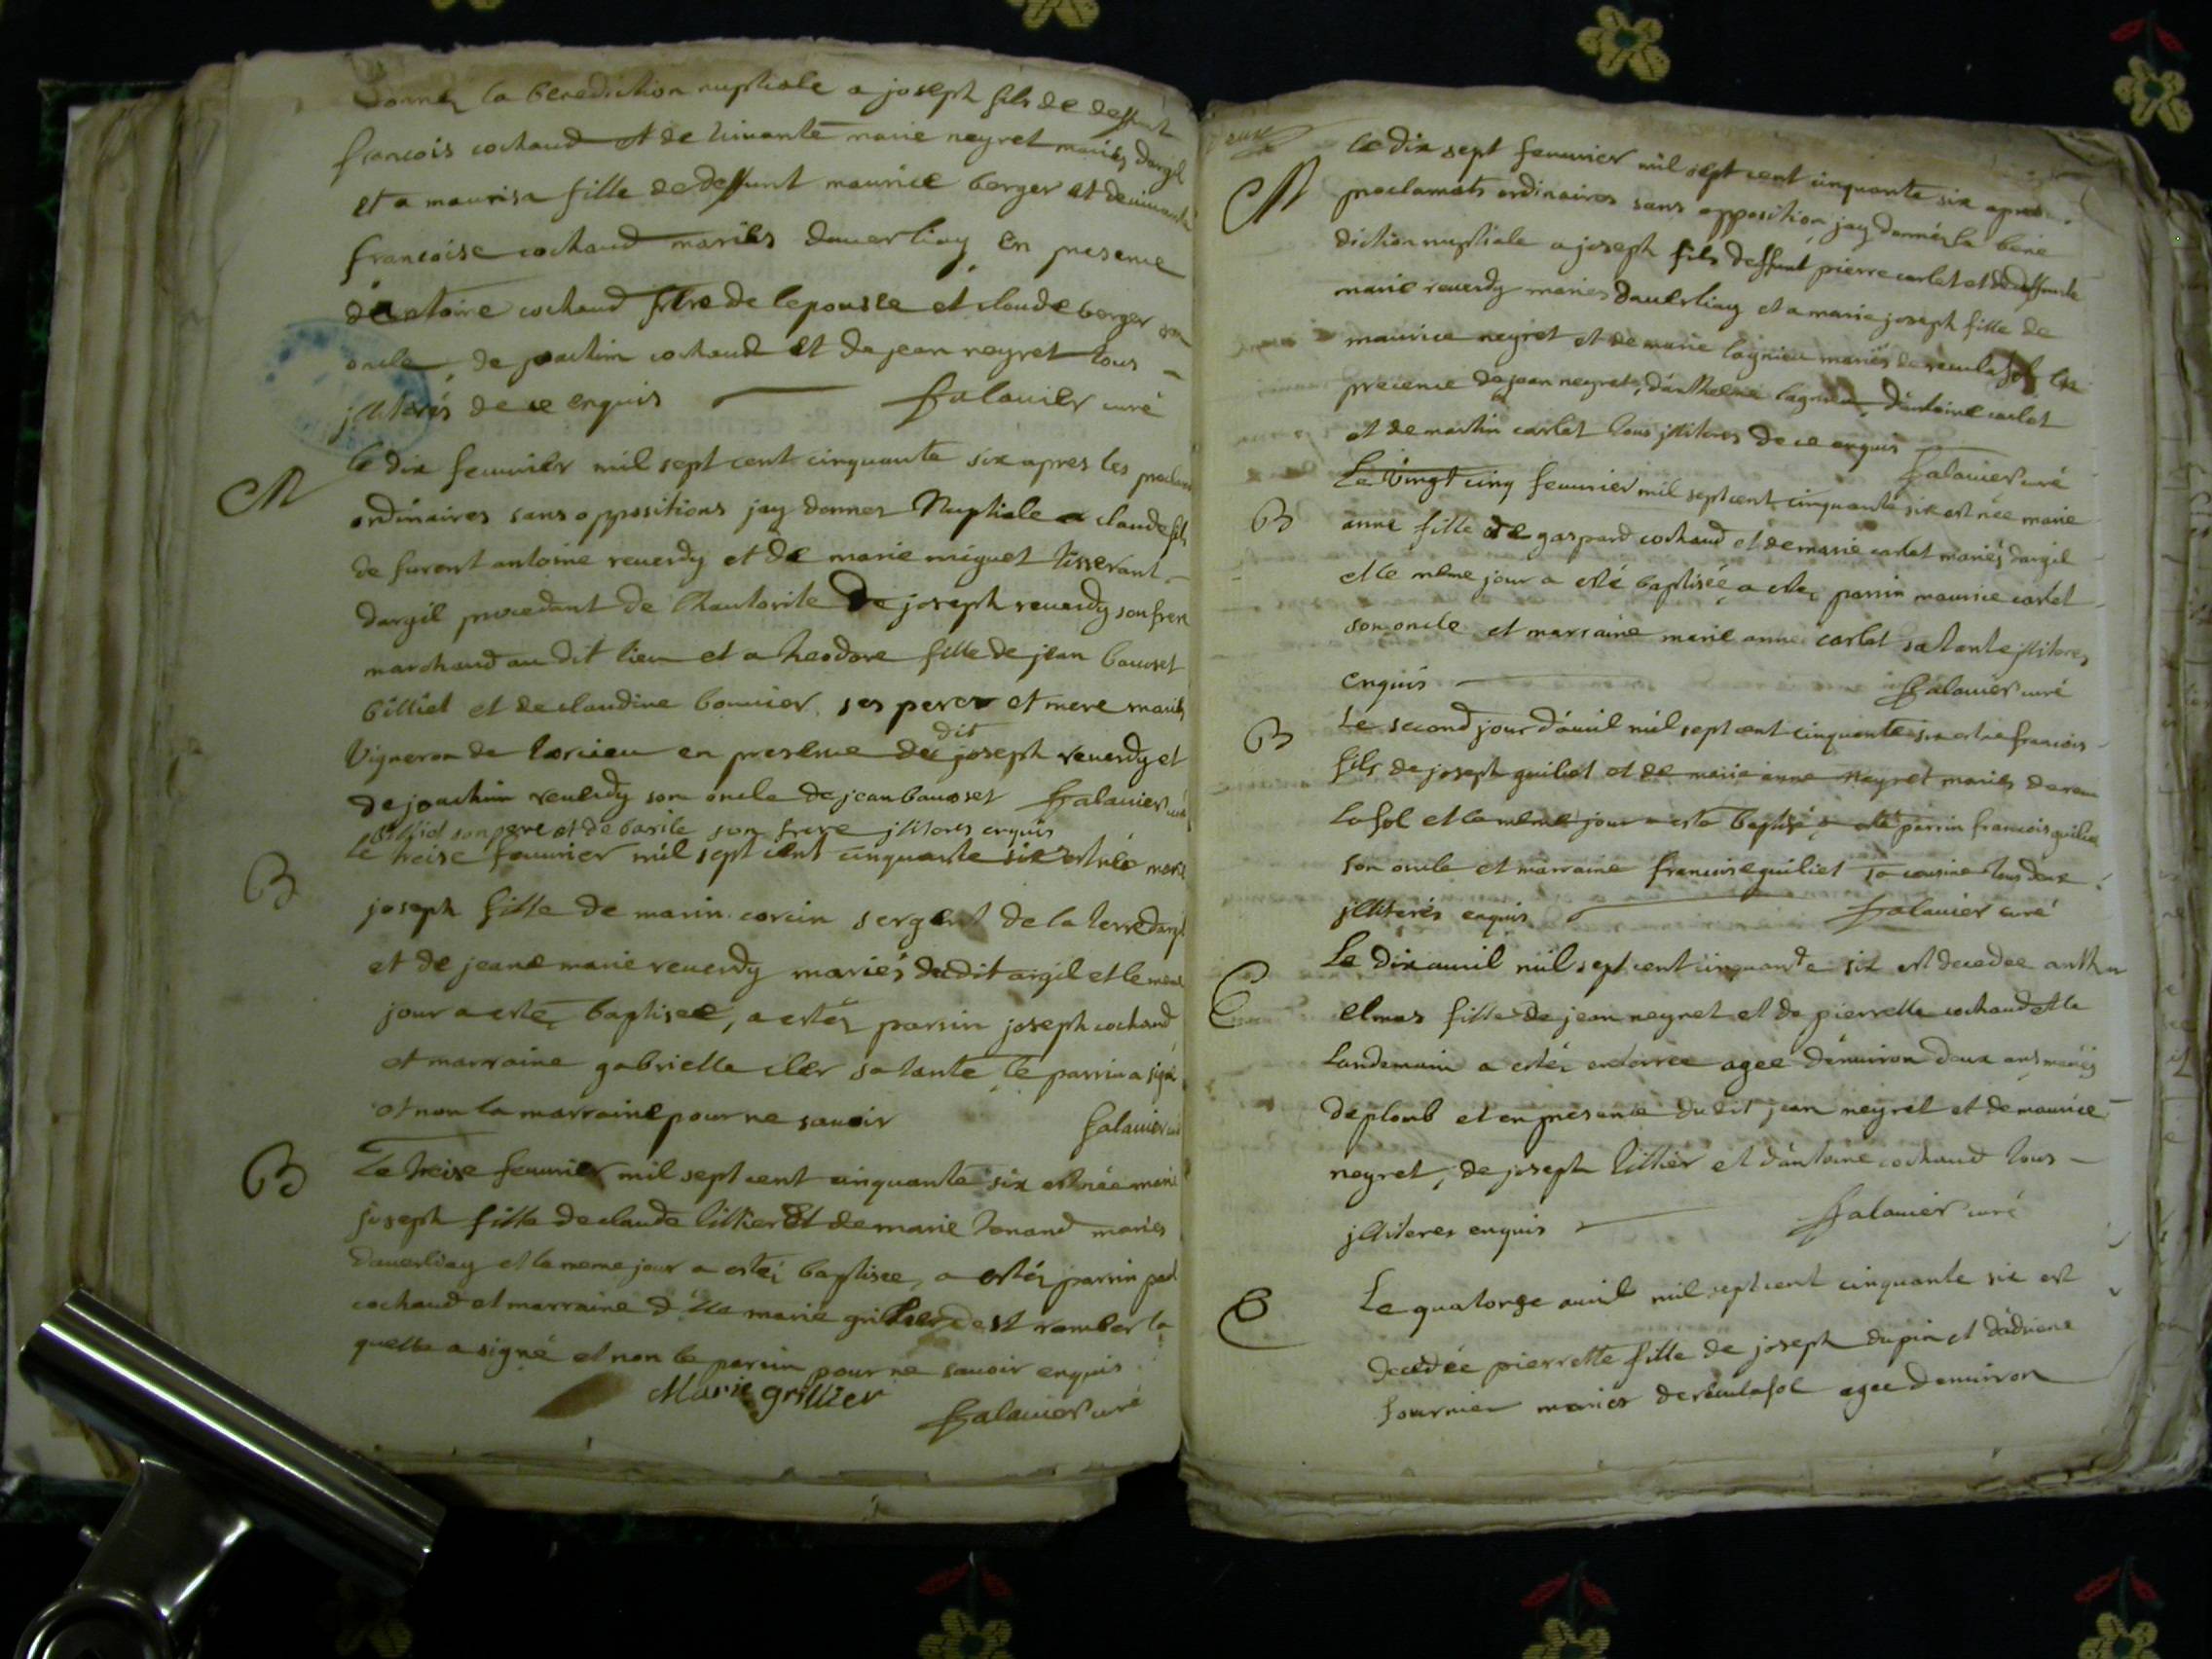 donnez la benediction nuptiale a joseph fils de deffunt
francois cochaud et de vivante marie neyret mariés dargil
et a maurisa fille de deffunt maurice berger et de vivante
francoise cochaud mariés daverliay en presence
dantoine cochaud frere de lepouse et claude berger son
oncle, de joachim cochaud et de jean neyret tous
illiterés de ce enquis falavier curé
M
le dix fevvrier mil sept cent cinquante six apres les proclams
ordinaires sans oppositions jay donner Nuptiale a claude fils
de furent antoine reverdy et de marie miguet tisserant
dargil procedant de lhautorite de joseph reverdy son frere
marchand au dit lieu et a theodore fille de jean
billiet et de claudine bonnier ses peres et mere mariés
Vigneron de en presence du dit joseph reverdy et
de joachim reverdy son oncle de jean falavier curé
billiet son pere et de basile son frere illiteres enquis
B
le treise fevvrier mil sept cent cinquante six est née marie
joseph fille de marin corcin sergent de la terre dargil
et de jeane marie reverdy mariés dudit argil et le meme
jour a estéz baptisee, a estéz parrin joseph cochaud
et marraine gabrielle cler sa tante le parrin a signé
et non la marraine pour ne savoir falavier curé
B
Le treise fevvrier mil sept cent cinquante six est née marie
joseph fille de claude tillier et de marie tenand mariés
daverliay et le meme jour a estéz baptisee, a estéz parrin
cochaud et marraine dlle marie grillier de st ramber la
quelle a signé et non le parrin pour ne savoir enquis
Marie grillier
falavier curé
M
le dix sept fevvrier mil sept cent cinquante six apres
proclamats ordinaires sans opposition jay donnéz la bene
diction nuptiale a joseph fils deffunt pierre carlet et de deffunte
marie reverdy mariés daverliay et a marie joseph fille de
maurice neyret et de marie lagnieu mariés de reculafol en
precence de jean neyret, danthelme lagnieu, dantoine carlet
et de martin carlet tous illiteres de ce enquis
falavier curé
B
Le vingt cinq fevvrier mil sept cent cinquante six est née marie
anne fille de gaspard cochaud et de marie carlet mariés dargil
et le même jour a esté baptisée, a estez parrin maurice carlet
son oncle et marraine marie anne carlet sa tante illiteres
enquis falavier curé
B
Le second jour davril mil sept cent cinquante six est né francois
fils de joseph guiliet et de marie anne neyret mariés de recu
lafol et le même jour a esté baptisé, a esté parrin francois guiliet
son oncle et marraine francoise guiliet sa cousine tous deux
illiterés enquis falavier curé
E
Le dix avril mil sept cent cinquante six est decedee anth
elmas fille de jean neyret et de pierrette cochaud et le
landemain a estéz enterree agee denviron deux ans mariés
deplonb et en presence du dit jean neyret et de maurice
neyret, de joseph tillier et dantoine cochaud tous
illiteres enquis falavier curé
E
Le quatorze avril mil sept cent cinquante six est
decedée pierrette fille de joseph dupin et dadriene
fournier mariés de reculafol agee denviron